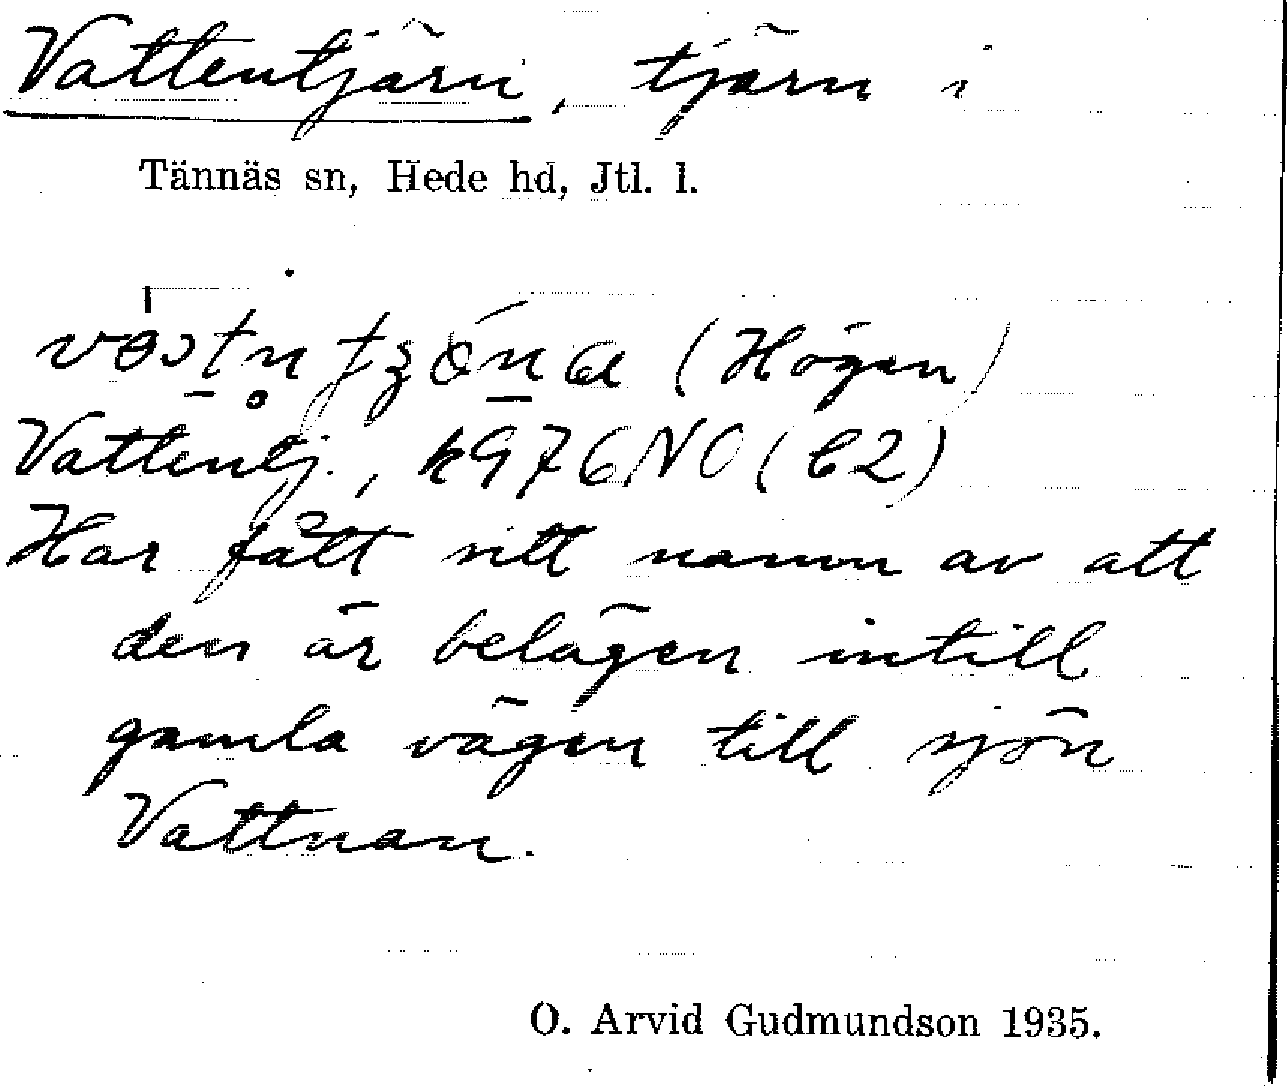 Vattentjärn, tjärn i
Tännäs sn, Hede hd, Jtl. l.
(Högen)
Vattentj., k976NO (C2)
Har fått sitt namn av att
den är belägen intill
gamla vägen till sjön
Vattnan.
O. Arvid Gudmundson 1935.